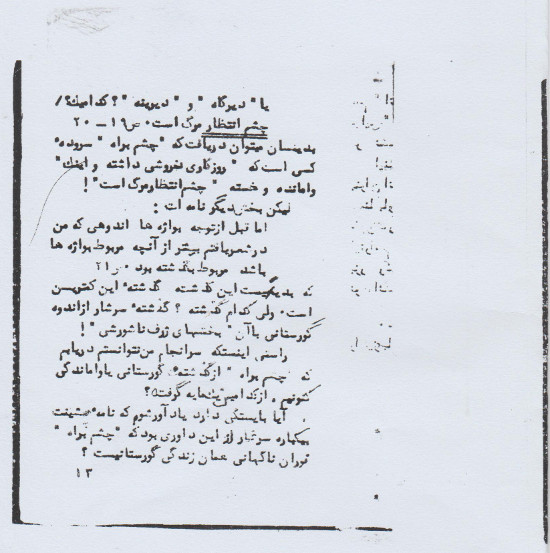 یا " دیرگاه " و " دیرینه " ؟ کدامیك؟/
چشم انتظار مرگ است . ص ۱۹ – ۲۰
بدینسان میتوان دریافت که " چشم براه " سروده
کسی است که " روزگاری نفروشی داشته و اینك "
وامانده و خسته " چشم انتظار مرگ است " !
لیکن بخش دیگر نامه ات :
اما قبل از توجه بواژه ها اندوهی که من
در شعر یافتم بیشتر از آنچه مربوط بواژه ها
باشد مربوط بگذشته بود . ص ۲۱
که بدیگیست این گذشته " گذشته " این
است . ولی کدام گذشته ؟ گذشته سرشار از اندوه
گورستانی یا آن " بخشهای ژرف ناشورشی " !
راستی اینستکه سرانجام من نتوانستم دریابم
که " چشم براه " از گذشته گورستانی یا واماندگی
کنونیم ، از کدامین مایه گرفته ؟
آیا بایستگی دارد یاد آور شوم که نامه
بیکباره سرشار از این داوری بود که " چشم براه "
توران ناگهانی همان زندگی گورستانیست ؟
۱۳